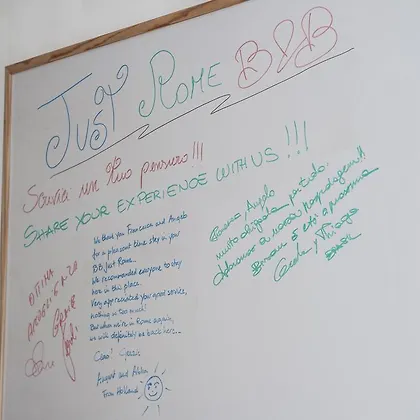 JUST ROME B&B
Scrivi un tuo pensiero!!!
SHARE YOUR EXPERIENCE WITH US!!!
We thank you Francesca and Angelo
for a pleasant time stay in your
BB Just Rome.
We recommended everyone to stay
here in this place.
Very appreciated your good service,
nothing is too much!
But when we're in Rome again,
we will definitely be back here...
Ciao! Grazie
August and
From Holland
Angelo
muito obrigada por tudo.
Adoramos a nossa hospedagem!!
e até a próxima
y Thiago
OTTIMA